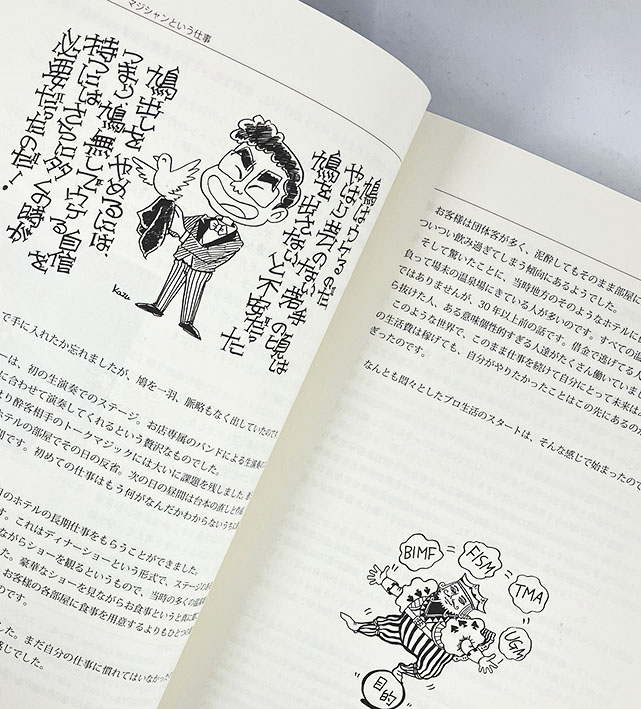 マジシャンという仕事
鳩はウケるのだ
やはり芸のない若手の頃は
鳩を出さないと不安だった
鳩出しをやめるには、
つまり鳩無しでやる自信を
持つにはさらに多くの時間が
必要だったのだ!
Kazu
で手に入れたか忘れましたが、鳩を一羽、脈略もなく出していたのです
ーは、初の生演奏でのステージ。お店専属のバンドによる生演奏
に合わせて演奏してくれるという贅沢なものでした。
より酔客相手のトークマジックには大いに課題を残しました
ホテルの部屋でその日の反省。次の日の昼間は台本の直しと
間です。初めての仕事はもう何がなんだかわからないうちに
のホテルの長期仕事をもらうことができました。
す。これはディナーショーという形式で、ステージの
ながらショーを観るというもので、当時の多くの温泉
た。豪華なショーを見ながらお食事という
お客様の各部屋に食事を用意するよりもひとつに
のです。
した。まだ自分の仕事に慣れてはいなかった
感じでした。
お客様は団体客が多く、泥酔してもそのまま部屋に
ついつい飲み過ぎてしまう傾向にあるようでした。
そして驚いたことに、当時地方のそのようなホテルに
負って場末の温泉場にきている人が多いのです。すべての
ではありませんが、30年以上前の話です。借金で逃げてる人
ら抜けた人、ある意味個性的すぎる人達がたくさん働いていまし
このような世界で、このまま仕事を続けて自分にとって未来は
の生活費は稼げても、自分がやりたかったことはこの先にあるのか
ぎったのです。
なんとも悶々としたプロ生活のスタートは、そんな感じで始まったので
BIMF = FISM = TMA
UGM
"目的"